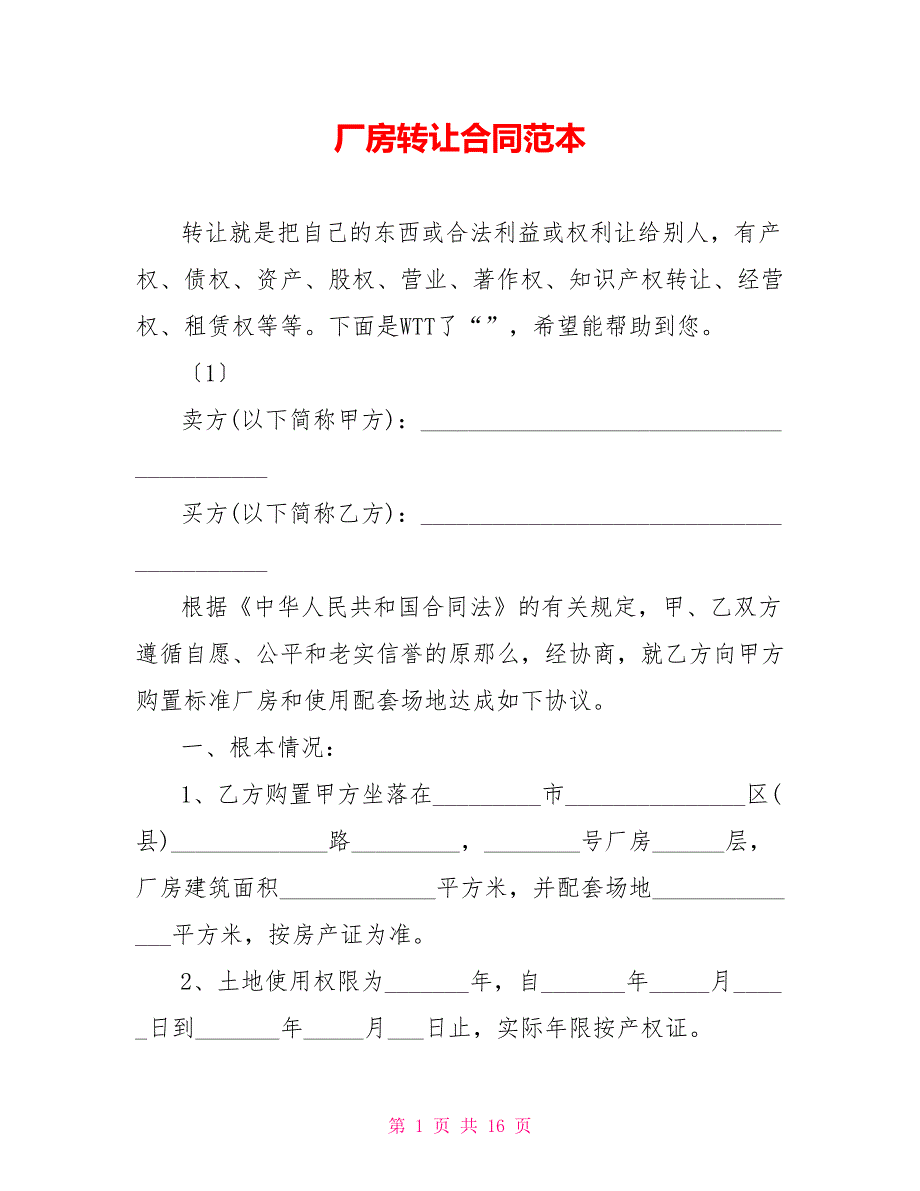 厂房转让合同范本
转让就是把自己的东西或合法利益或权利让给别人，有产
权、债权、资产、股权、营业、著作权、知识产权转让、经营
权、租赁权等等。下面是WTT了“”，希望能帮助到您。
〔1〕
卖方(以下简称甲方)：______________________________
___________
买方(以下简称乙方)：______________________________
___________
根据《中华人民共和国合同法》的有关规定，甲、乙双方
遵循自愿、公平和老实信誉的原那么，经协商，就乙方向甲方
购置标准厂房和使用配套场地达成如下协议。
一、根本情况：
1、乙方购置甲方坐落在_________市_______________区(
县)_____________路_________，________号厂房______层，
厂房建筑面积_____________平方米，并配套场地___________
___平方米，按房产证为准。
2、土地使用权限为_______年，自_______年_____月____
_日到_______年_____月___日止，实际年限按产权证。
第 1 页 共 16 页